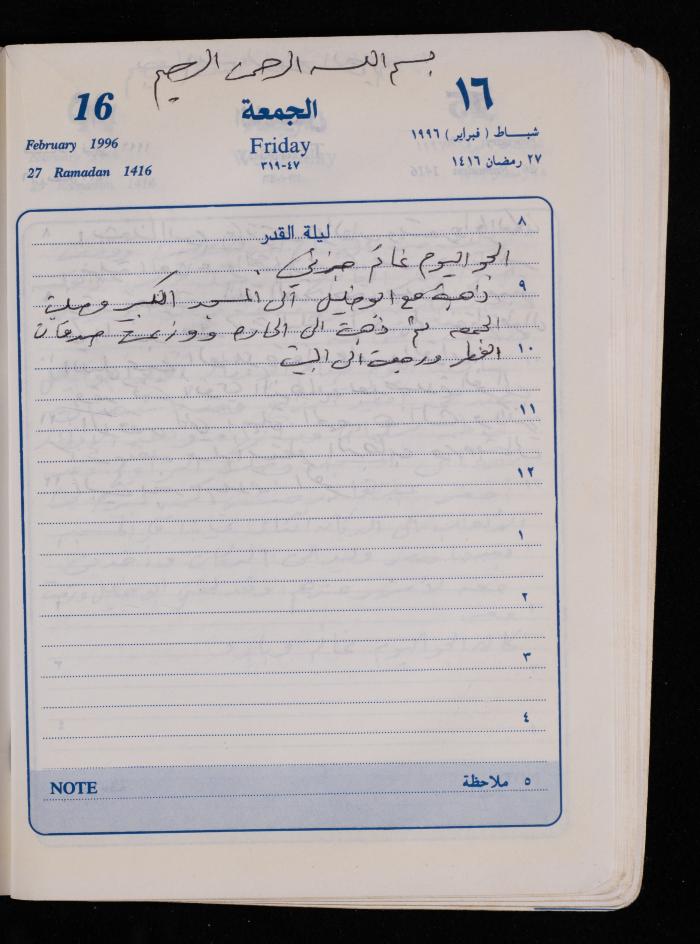 بسم الله الرحمن الرحيم
16 الجمعة ١٦
February 1996 Friday شباط ( فبراير ) ١٩٩٦
27 Ramadan 1416 ٤٧-٣١٩ ٢٧ رمضان ١٤١٦
٨
ليلة القدر
الجو اليوم غائم جزئي .
٩
ذهبة مع ابو خليل الى المسجد الكبير وصلية
الجمعه ثم ذهبة الى الحاره ووزعة صدقات
١٠
الفطر ورجعة الى البيت
١١
١٢
١
٢
٣
٤
NOTE ٥ ملاحظة